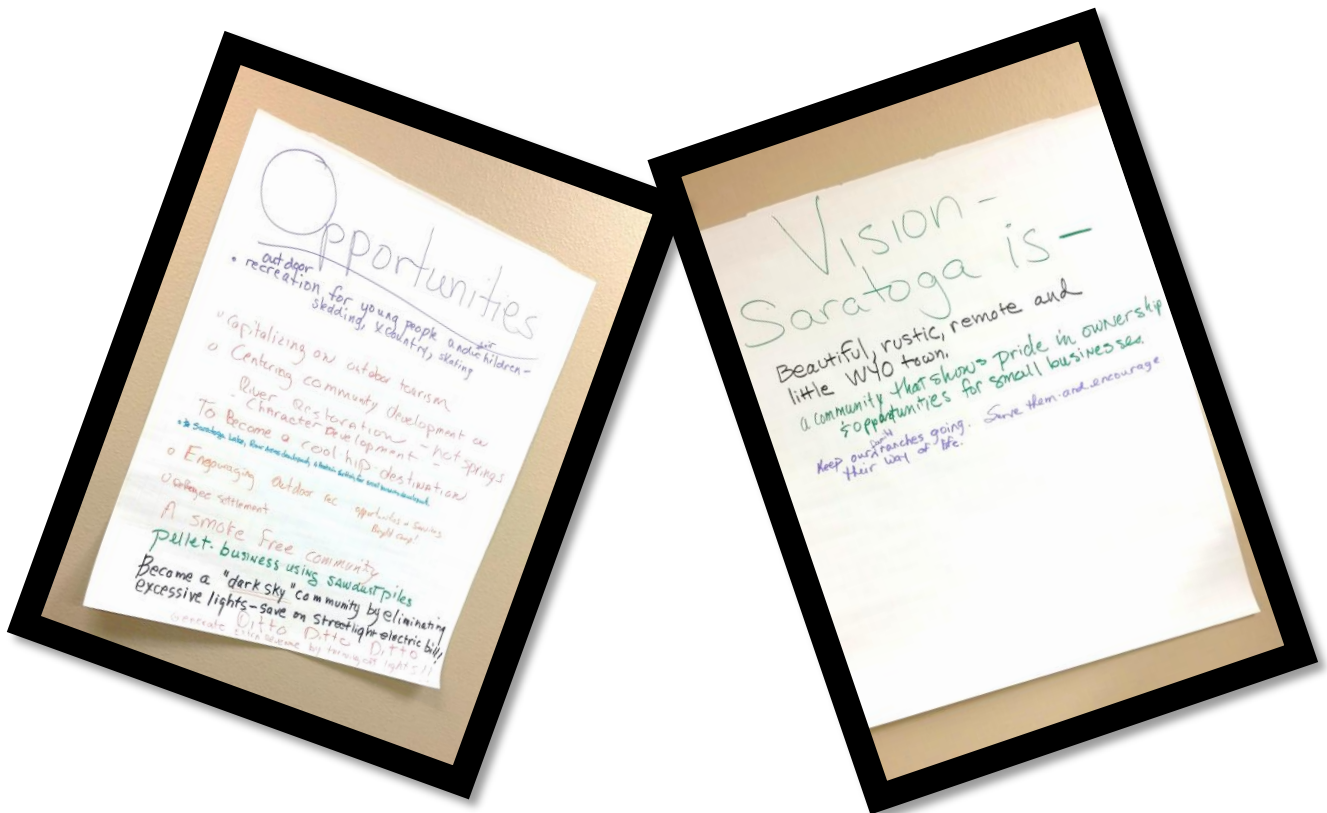 Opportunities
• outdoor
recreation for young people and their children -
sledding, xcountry, skating
o Capitalizing on outdoor tourism
o Centering community development on
River Restoration - hot springs
- Character Development -
To Become a cool-hip-destination
Saratoga Lake, River
o Encouraging outdoor rec opportunities
settlement
A smoke free community
pellet-business using sawdust piles
Become a "dark sky" community by eliminating
excessive lights-save on streetlight electric bill!
Ditto Ditto Ditto
Generate extra income by
Vision -
Saratoga is -
Beautiful, rustic, remote and
little WYO town.
a community that shows pride in ownership
& opportunities for small businesses.
Keep our family ranches going. Save them and encourage
their way of life.